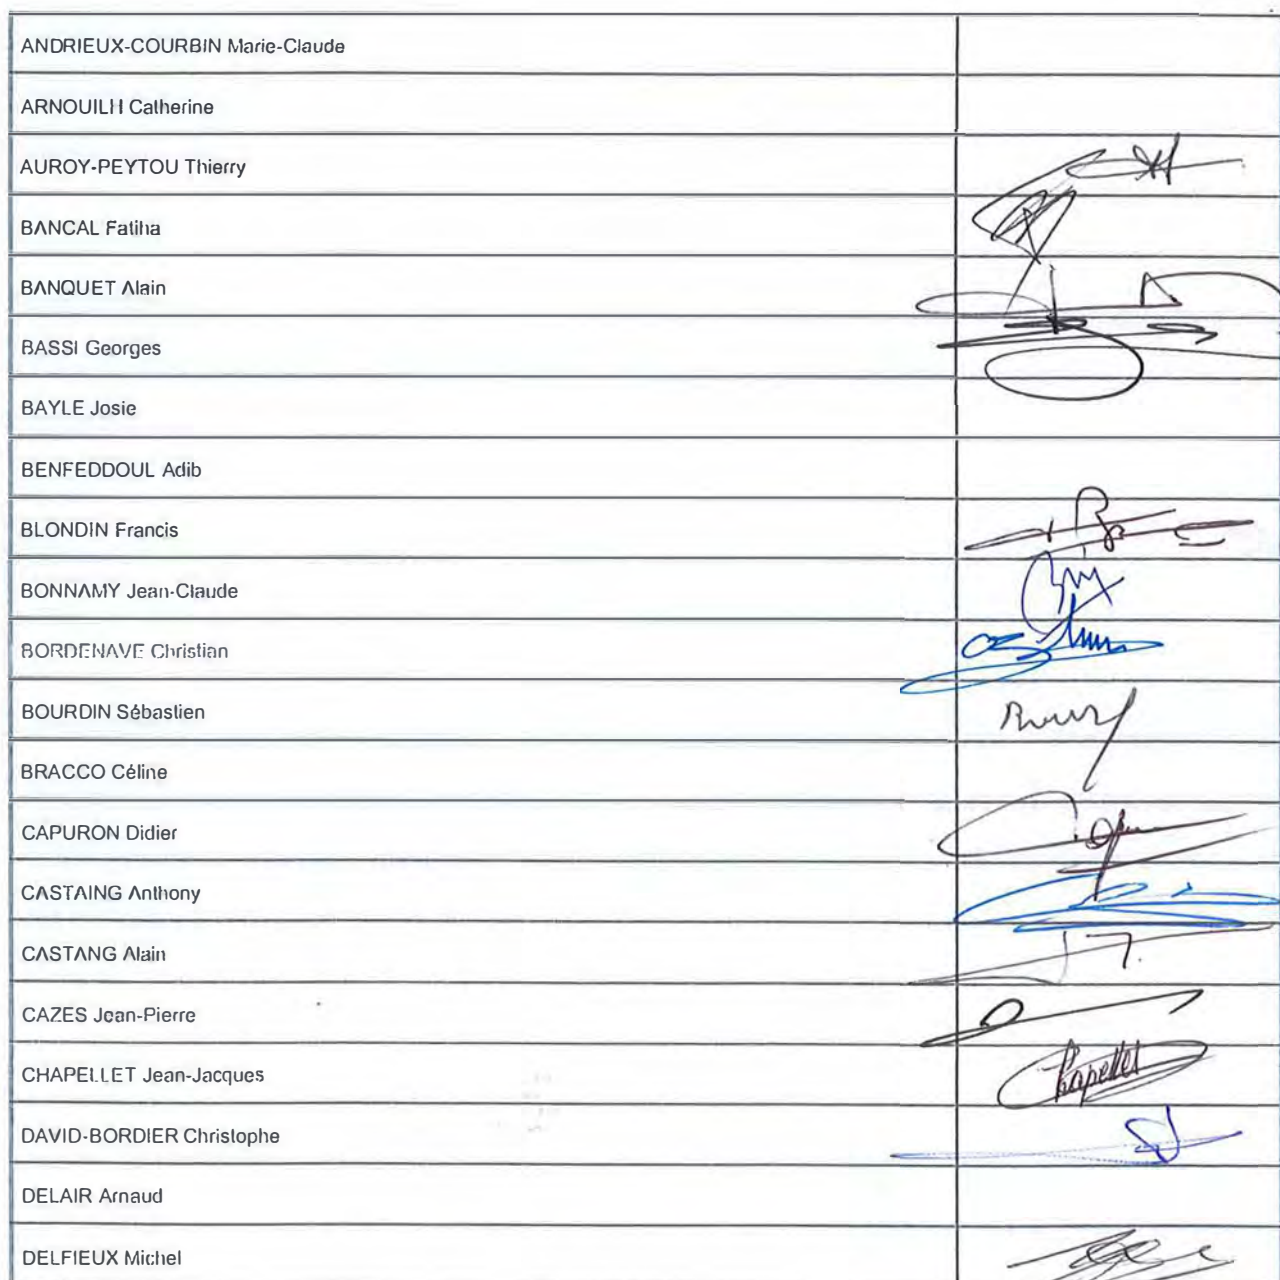 ANDRIEUX-COURBIN Marie-Claude
ARNOUILH Catherine
AUROY-PEYTOU Thierry
BANCAL Fatiha
BANQUET Alain
BASSI Georges
BAYLE Josie
BENFEDDOUL Adib
BLONDIN Francis
BONNAMY Jean-Claude
BORDENAVE Christian
BOURDIN Sébastien
BRACCO Céline
CAPURON Didier
CASTAING Anthony
CASTANG Alain
CAZES Jean-Pierre
CHAPELLET Jean-Jacques
DAVID-BORDIER Christophe
DELAIR Arnaud
DELFIEUX Michel